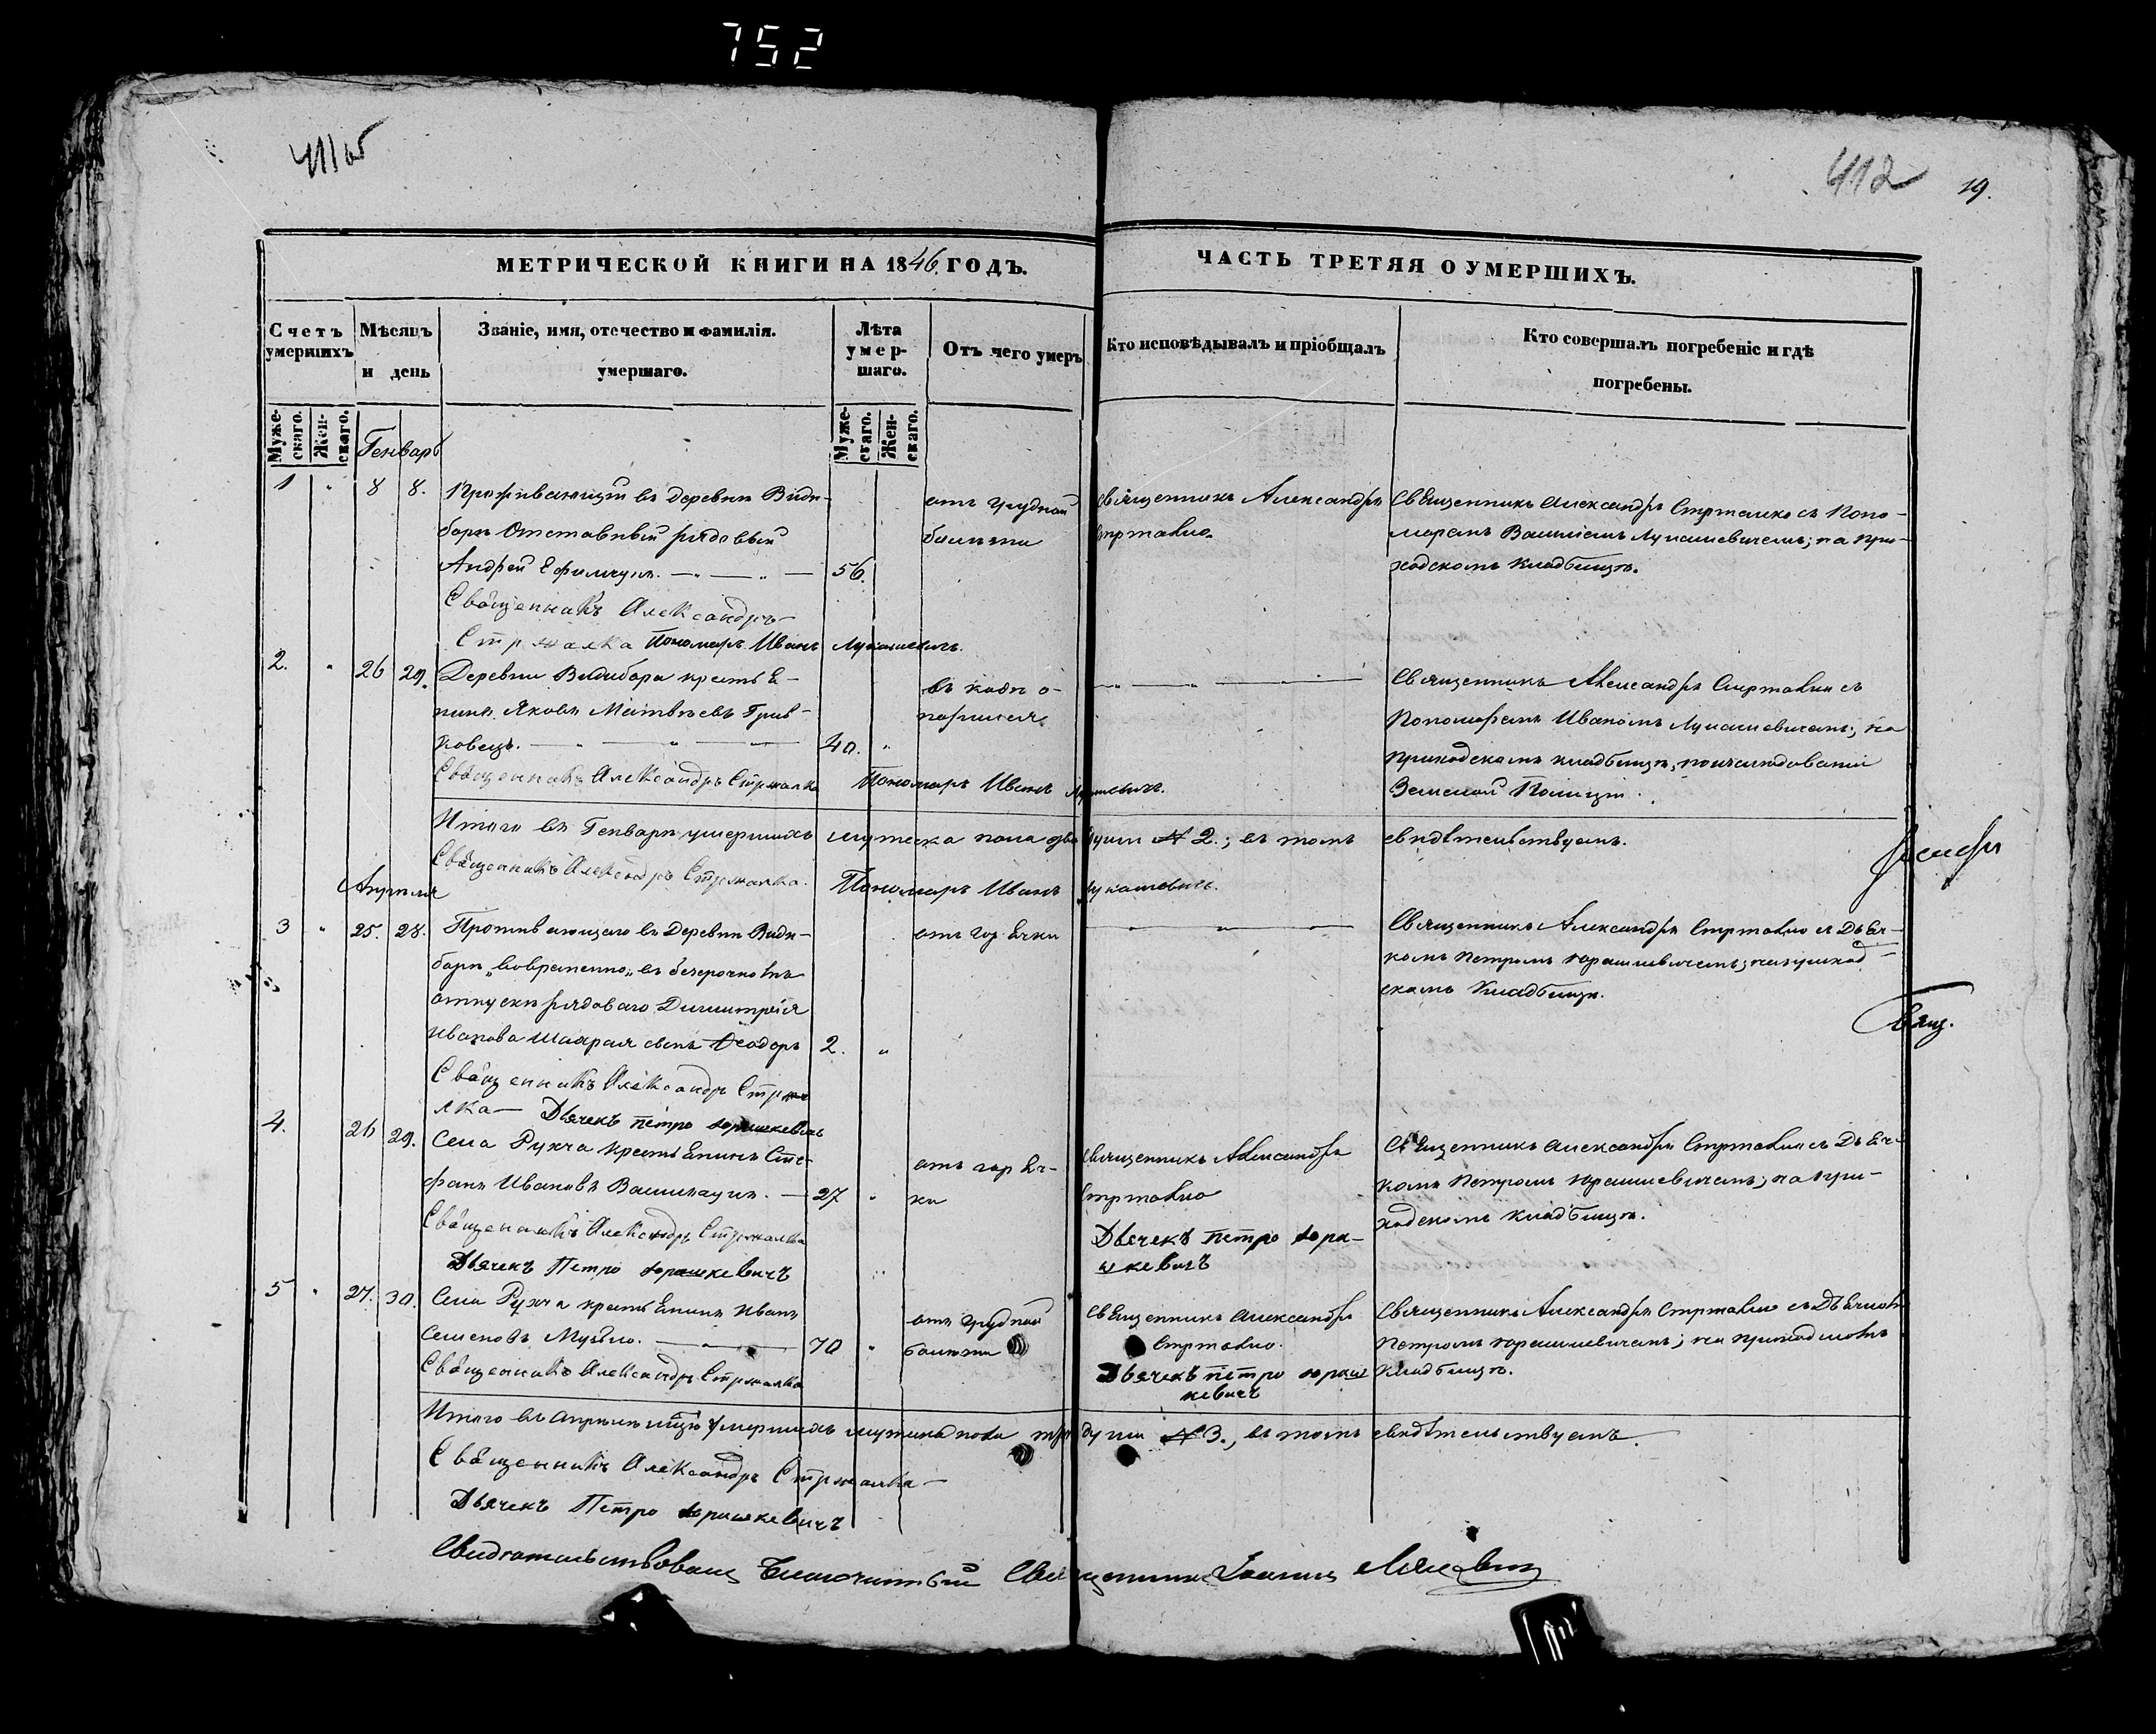 752
411 об
412
19.
МЕТРИЧЕСКОЙ КНИГИ НА 1846. ГОДЪ.
ЧАСТЬ ТРЕТЯЯ О УМЕРШИХЪ.
Счетъ умершихъ
Мѣсяцъ и день
Званіе, имя, отечество и фамилія. умершаго.
Лѣта умер-шаго.
Отъ чего умеръ
Кто исповѣдывалъ и пріобщалъ
Кто совершалъ погребеніе и гдѣ
погребены.
Муже-скаго.
Жен-скаго.
Муже-скаго.
Жен-скаго.
Генварь
1 " 8 8. Проживающій въ деревни Види-
боръ Отставный рядовый
Андрей Ефимчукъ. 56.
отъ грудной
болѣзни
Священникъ Александръ
Стржалко.
Священникъ Александръ Стржалко съ Поно-
маремъ Лукашевичемъ; на при-
ходскомъ кладбищѣ.
Священникъ Александръ
Стржалка Пономаръ Иванъ Лукашевичъ.
2. " 26 29. Деревни Видибора крестья-
нинъ Яковъ Матвѣевъ
40. "
Священникъ Александръ Стржалко съ
Пономаремъ Иваномъ Лукашевичемъ; на
приходскомъ кладбищѣ,
Земской Полиціи.
Священникъ Александръ Стржалка Пономаръ Иванъ Лукашевичъ.
Итого въ Генварѣ умершихъ мужеска пола двѣ души № 2.; въ томъ свидѣтельствуемъ.
Священникъ Александръ Стржалка. Пономаръ Иванъ Лукашевичъ.
Апрѣля
3 " 25. 28. Проживающаго въ Деревни Види-
борѣ въ безсрочномъ
отпуску рядоваго Димитрія
Иванова сынъ Ѳеодоръ 2. "
отъ горячки
Священникъ Александръ Стржалко съ Дьяч-
комъ Петромъ Юрашкевичемъ; на приход-
скомъ Кладбищѣ.
Свящ.
Священникъ Александръ Стржа-
лка — Дьячекъ Петро Юрашкевичъ
4. 26 29. Села Рухча крестьянинъ Сте-
фанъ Ивановъ 27 "
отъ горяч-
ки
Священникъ Александръ
Стржалко
Дьячекъ Петро Юра-
шкевичъ
Священникъ Александръ Стржалко съ Дьяч-
комъ Петромъ Юрашкевичемъ; на при-
ходскомъ кладбищѣ.
Священникъ Александръ Стржалка
Дьячекъ Петро Юрашкевичъ
5 " 27. 30. Села Рухча крестьянинъ Иванъ
Семеновъ 70 "
отъ грудной
болѣзни
Священникъ Александръ
Стржалко.
Дьячекъ Петро Юраш
кевичъ
Священникъ Александръ Стржалко съ Дьячкомъ
Петромъ Юрашкевичемъ; на приходскомъ
кладбищѣ.
Священникъ Александръ Стржалка
Итого въ Апрѣлѣ умершихъ мужеска пола три души № 3., въ томъ свидѣтельствуемъ.
Священникъ Александръ Стржалка —
Дьячекъ Петро Юрашкевичъ
Свидѣтельствовалъ Благочинный Священникъ Іоаннъ